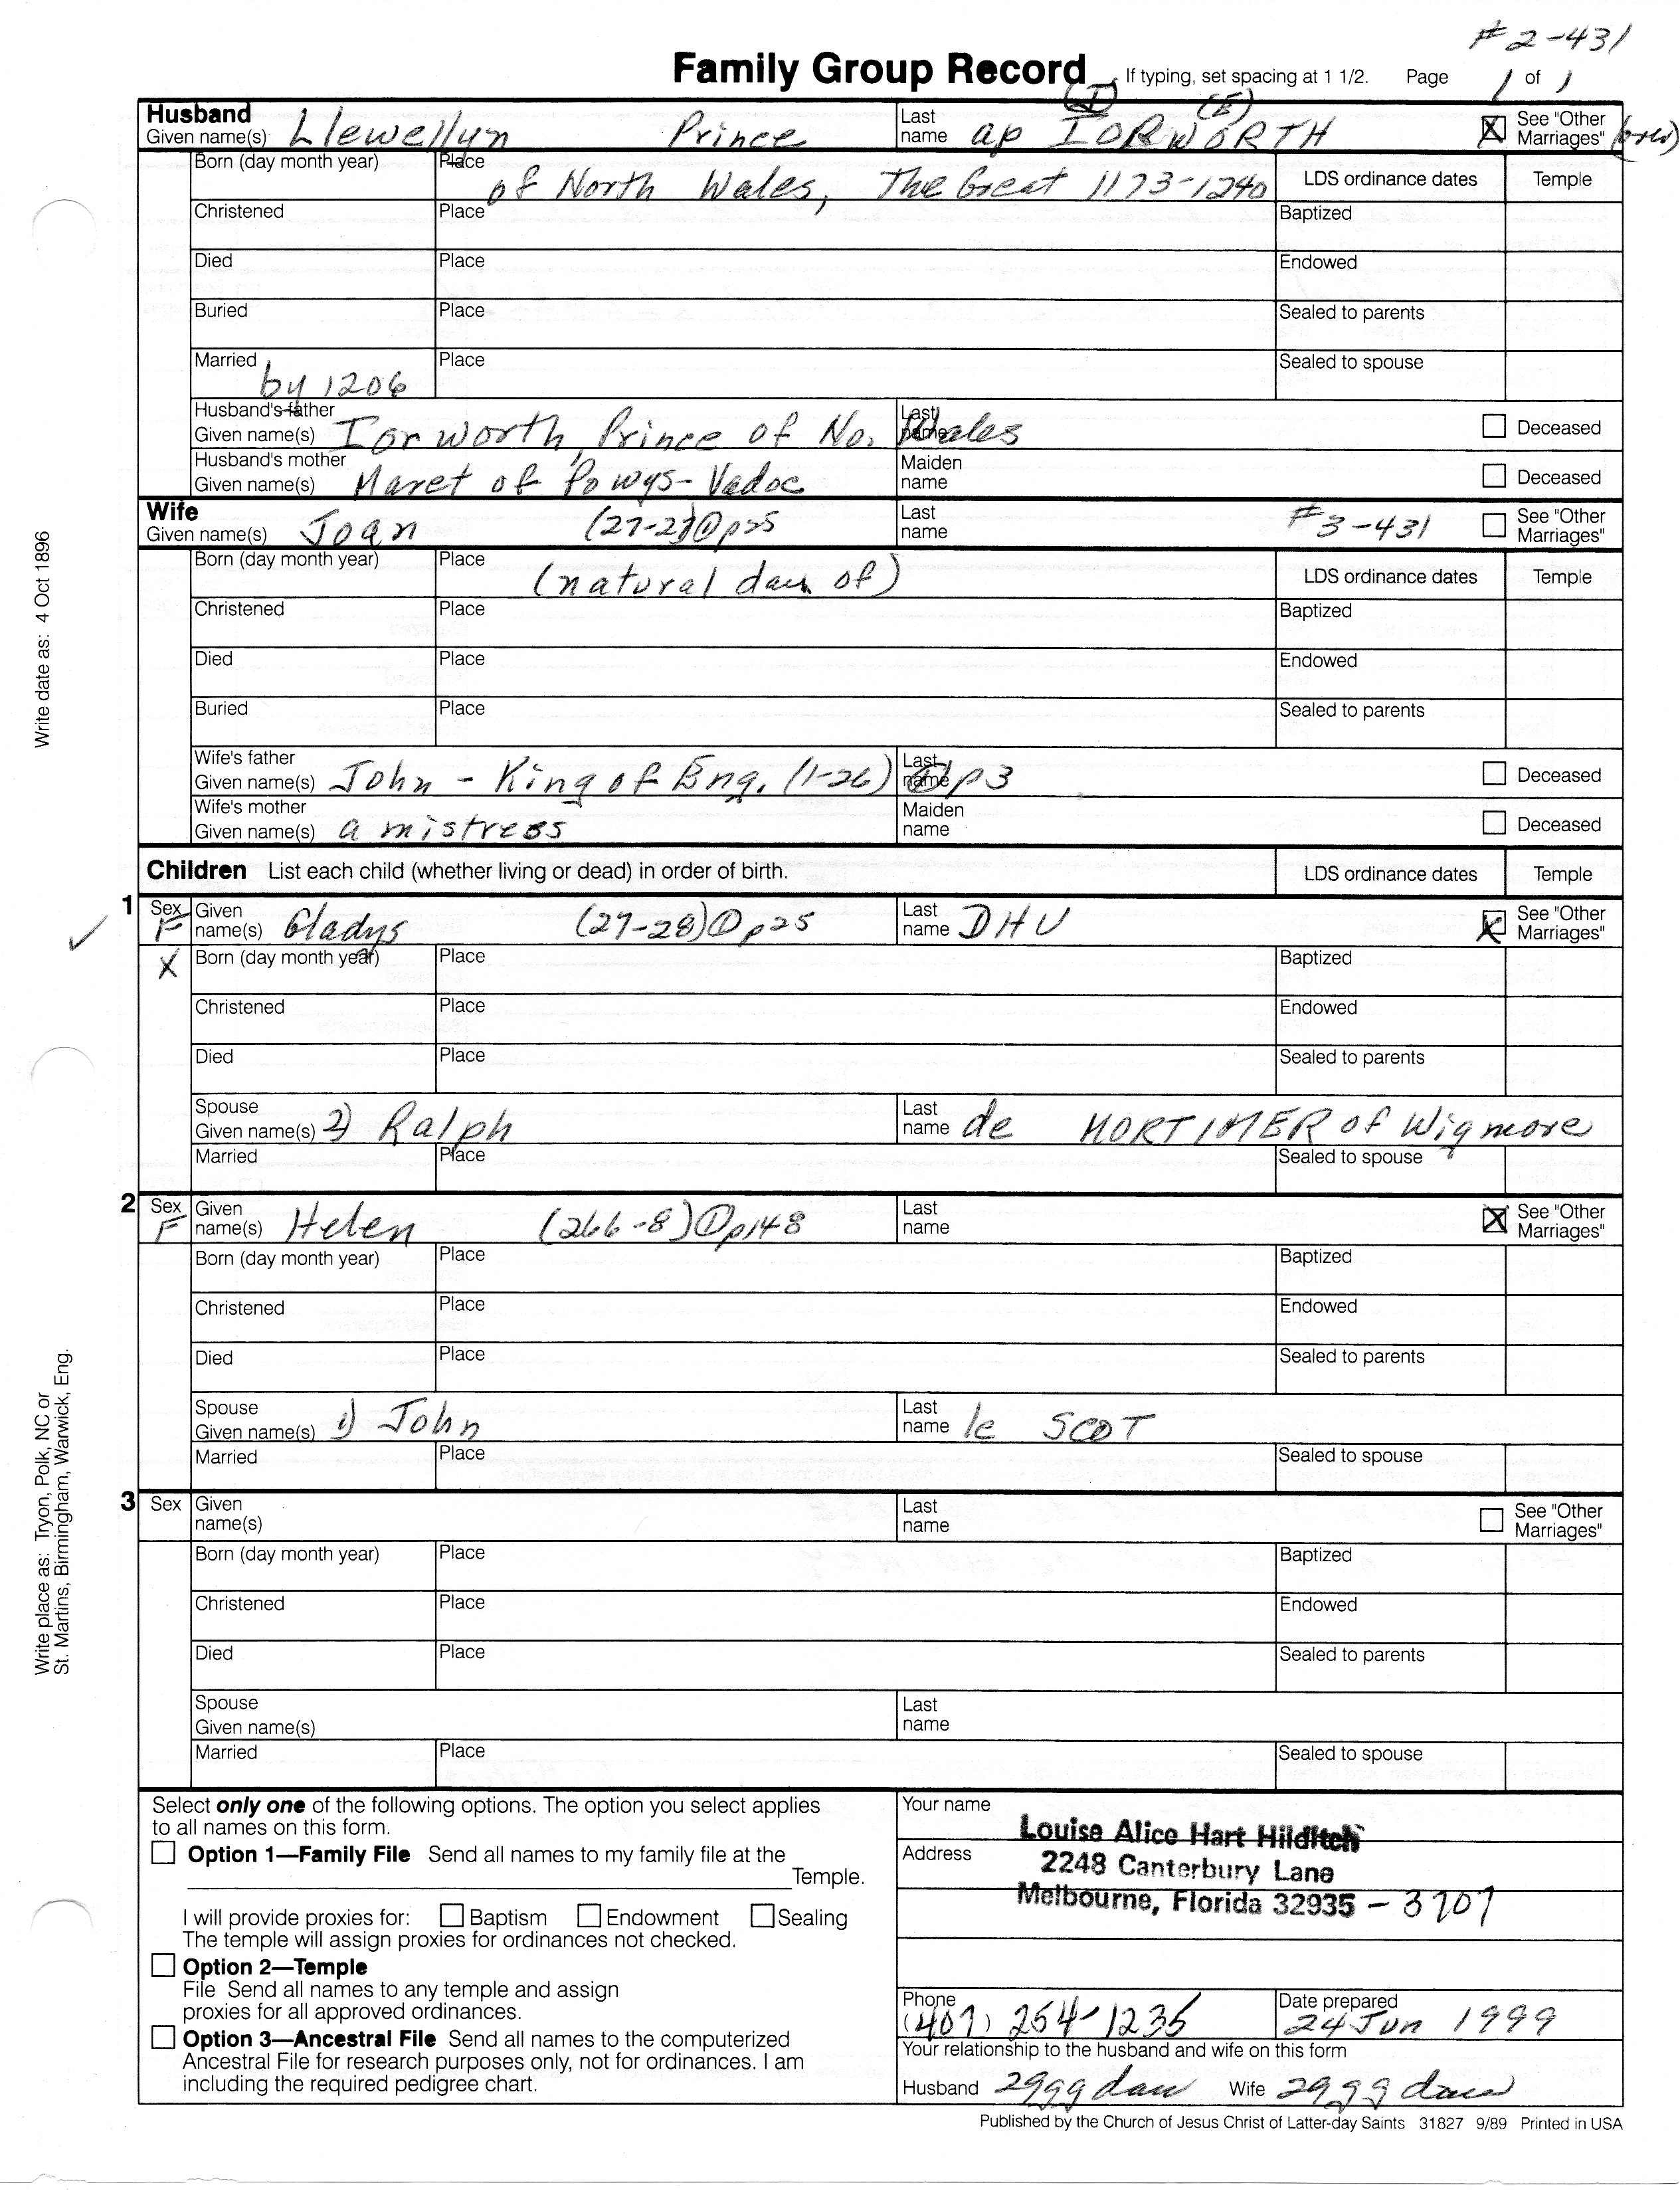 # 2-431
Family Group Record If typing, set spacing at 1 1/2. Page 1 of 1
(I) (E)
Husband
Given name(s) Llewellyn Prince Last name ap IORWORTH X See "Other Marriages"
Born (day month year) Place of North Wales, The Great 1173-1240 LDS ordinance dates Temple
Christened Place Baptized
Died Place Endowed
Buried Place Sealed to parents
Married by 1206 Place Sealed to spouse
Husband's father Given name(s) Iorworth, Prince of No. Wales Last name Deceased
Husband's mother Given name(s) Maret of Powys-Vadoc Maiden name Deceased
Wife
Given name(s) Joan (27-27) ① p25 Last name #3-431 See "Other Marriages"
Born (day month year) Place (natural dau of) LDS ordinance dates Temple
Christened Place Baptized
Died Place Endowed
Buried Place Sealed to parents
Wife's father Given name(s) John - King of Eng. (1-26) Last name ① p3 Deceased
Wife's mother Given name(s) a mistress Maiden name Deceased
Children List each child (whether living or dead) in order of birth. LDS ordinance dates Temple
1 Sex F Given name(s) Gladys (27-28) ① p25 Last name DHU X See "Other Marriages"
X Born (day month year) Place Baptized
Christened Place Endowed
Died Place Sealed to parents
Spouse Given name(s) 2) Ralph Last name de MORTIMER of Wigmore
Married Place Sealed to spouse
2 Sex F Given name(s) Helen (266-8) ① p148 Last name X See "Other Marriages"
Born (day month year) Place Baptized
Christened Place Endowed
Died Place Sealed to parents
Spouse Given name(s) 1) John Last name le SCOT
Married Place Sealed to spouse
3 Sex Given name(s) Last name See "Other Marriages"
Born (day month year) Place Baptized
Christened Place Endowed
Died Place Sealed to parents
Spouse Given name(s) Last name
Married Place Sealed to spouse
Select only one of the following options. The option you select applies
to all names on this form.
Option 1—Family File Send all names to my family file at the
Temple.
I will provide proxies for: Baptism Endowment Sealing
The temple will assign proxies for ordinances not checked.
Option 2—Temple
File Send all names to any temple and assign
proxies for all approved ordinances.
Option 3—Ancestral File Send all names to the computerized
Ancestral File for research purposes only, not for ordinances. I am
including the required pedigree chart.
Your name Louise Alice Hart Hilditch
Address 2248 Canterbury Lane
Melbourne, Florida 32935 - 3707
Phone (407) 254-1235 Date prepared 24 Jun 1999
Your relationship to the husband and wife on this form
Husband 29gg dau Wife 29gg dau
Published by the Church of Jesus Christ of Latter-day Saints 31827 9/89 Printed in USA
Write date as: 4 Oct 1896
Write place as: Tryon, Polk, NC or
St. Martins, Birmingham, Warwick, Eng.